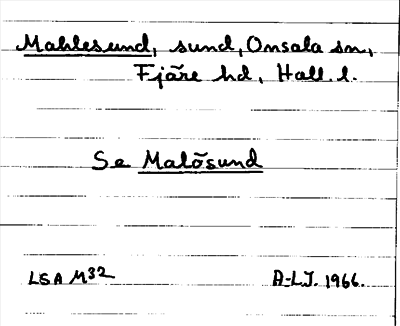 Mahlesund, sund, Onsala sn,
Fjäre hd, Hall. l.
Se Malösund
LSA M32 A-L.J. 1966.